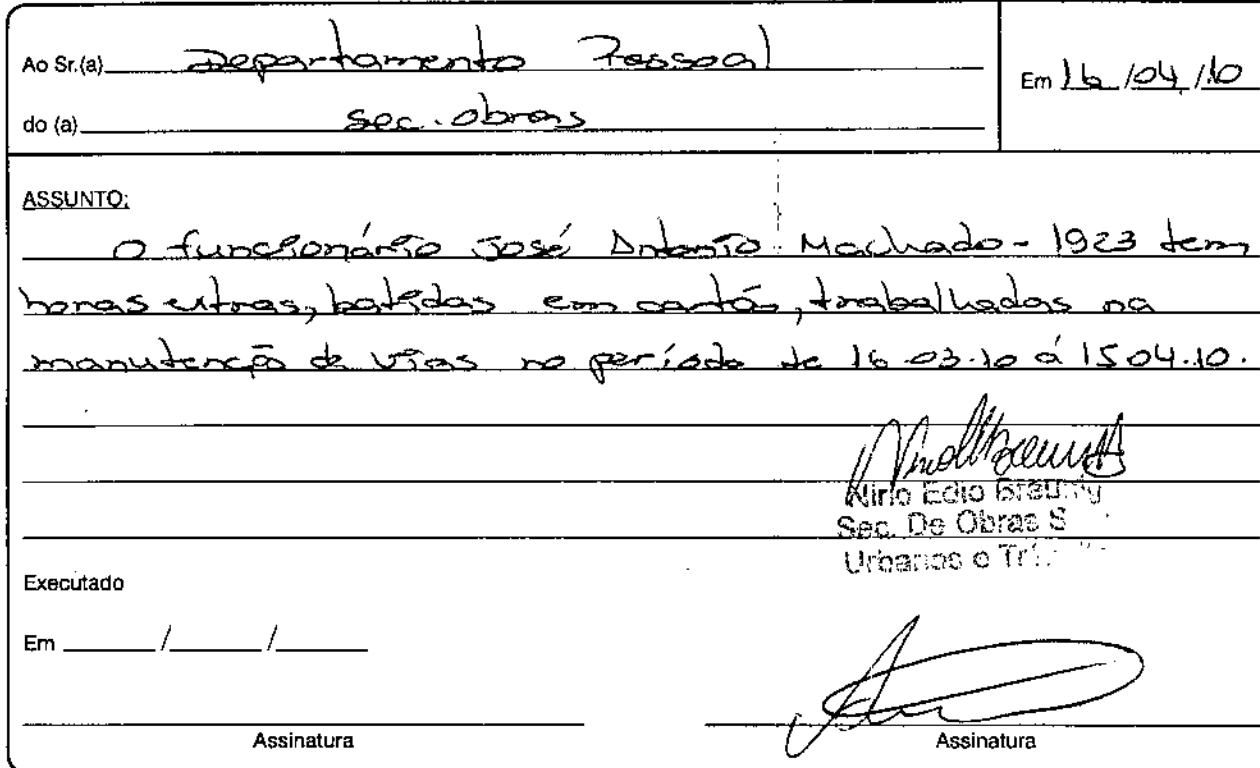 Ao Sr.(a) Departamento Pessoal
Em 16/04/10
do (a) Sec. obras
ASSUNTO:
O funcionário José Antonio Machado - 1923 tem
horas extras, batidas em cartão, trabalhadas na
manutenção de vias no período de 16-03-10 á 15 04.10.
Nirio Edio
Sec. De Obras S
Urbanos e
Executado
Em / /
Assinatura
Assinatura